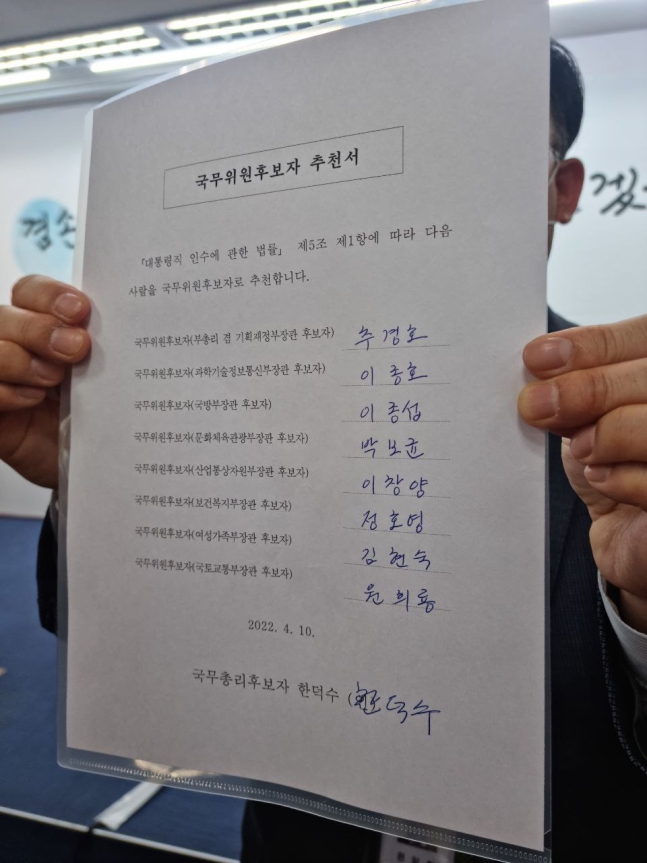 국무위원후보자 추천서
「대통령직 인수에 관한 법률」 제5조 제1항에 따라 다음
사람을 국무위원후보자로 추천합니다.
국무위원후보자(부총리 겸 기획재정부장관 후보자) 추경호
국무위원후보자(과학기술정보통신부장관 후보자) 이종호
국무위원후보자(국방부장관 후보자) 이종섭
국무위원후보자(문화체육관광부장관 후보자) 박보균
국무위원후보자(산업통상자원부장관 후보자) 이창양
국무위원후보자(보건복지부장관 후보자) 정호영
국무위원후보자(여성가족부장관 후보자) 김현숙
국무위원후보자(국토교통부장관 후보자) 원희룡
2022. 4. 10.
국무총리후보자 한덕수 (한덕수
겸손
겠